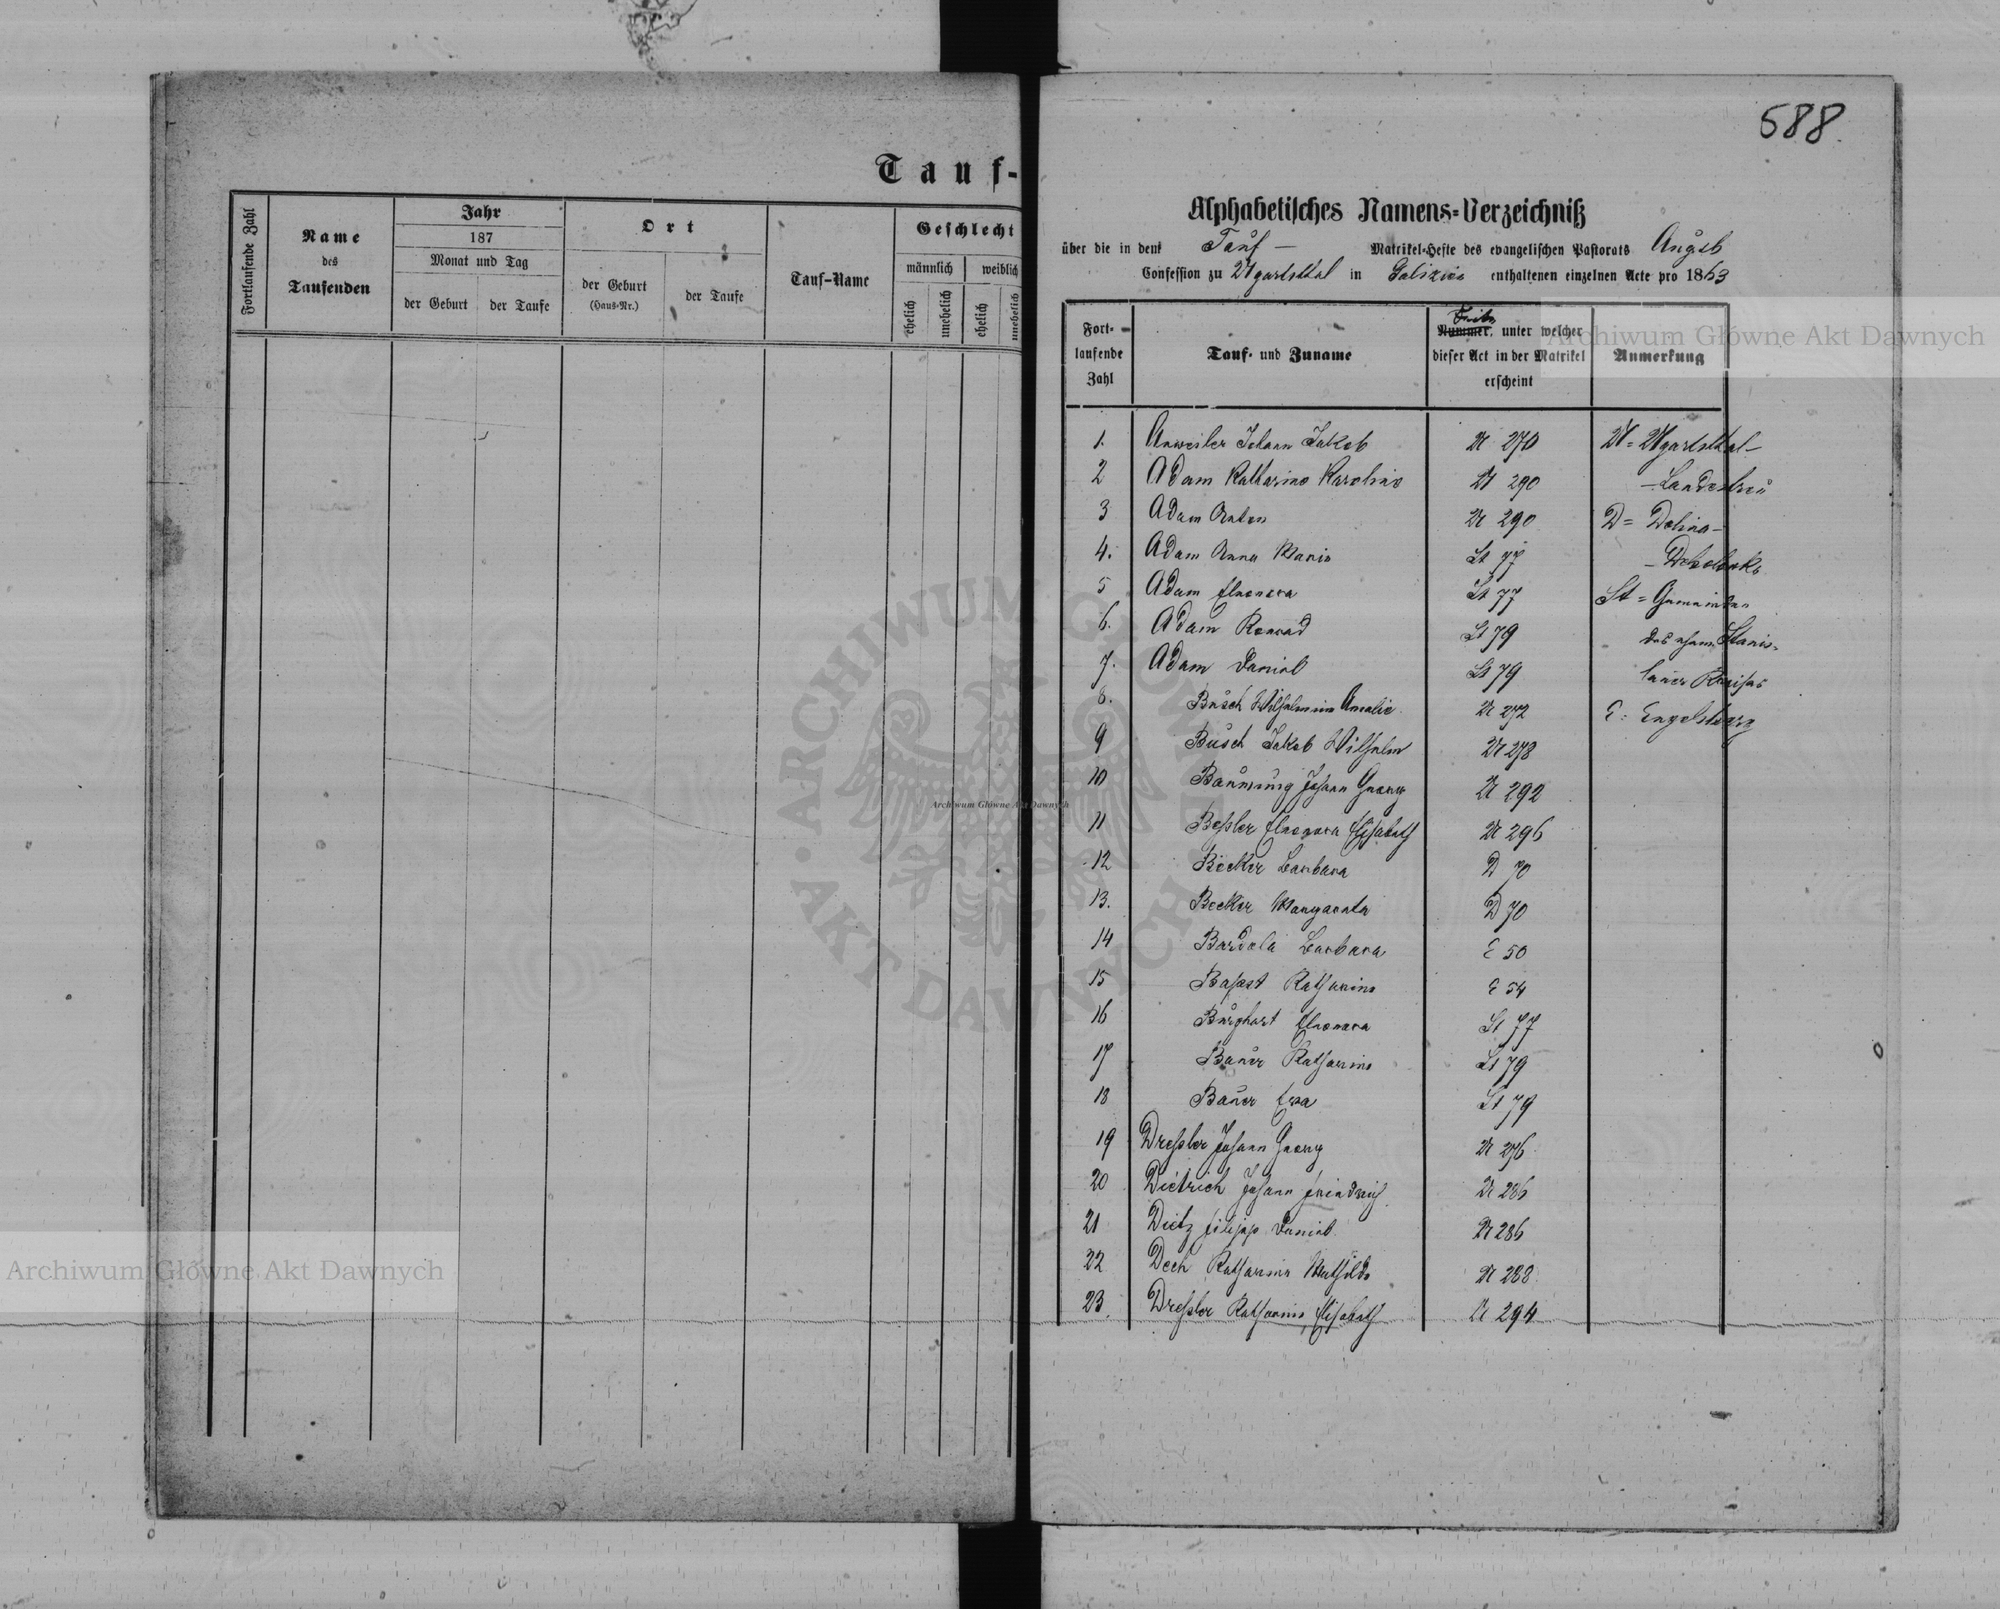 588.
Tauf-
Fortlaufende Zahl
Name
des
Taufenden
Jahr
187
Monat und Tag
der Geburt
der Taufe
Ort
der Geburt
(Haus-Nr.)
der Taufe
Tauf-Name
Geschlecht
männlich
weiblich
ehelich
unehelich
ehelich
unehelich
Alphabetisches Namens-Verzeichniß
über die in dem Tauf- Matrikel-Hefte des evangelischen Pastorats Augsb
Confession zu Ugartsthal in Galizien enthaltenen einzelnen Acte pro 1863
Fort-
laufende
Zahl
Tauf- und Zuname
Seite
Nummer, unter welcher
dieser Act in der Matrikel
erscheint
Anmerkung
1. Anweiler Johann Jakob U 270 U = Ugartsthal-
2 Adam Katharina Karolina U 290 -Landestreu
3 Adam Anton U 290 D = Dolina-
4. Adam Anna Maria St 77
5 Adam Eleonora St 77 St = Gemeinden
6. Adam Konrad St 79 des ehem. Stanis-
7. Adam Daniel St 79 lauer Kreises
8. Busch Wilhelmine Amalie U 272 E: Engelsberg
9 Busch Jakob Wilhelm U 278
10 Baumung Johann Georg U 292
11 Beßler Eleonora Elisabeth U 296
12 Becker Barbara D 70
13. Becker Margareta D 70
14 Bardola Barbara E 50
15 Katharina E 54
16 Burghart Eleonora St 77
17 Bauer Katharina St 79
18 Bauer Eva St 79
19 Dreßler Johann Georg U 276
20 Dietrich Johann Friedrich U 286
21 Dietz Filipp Daniel U 286
22 Dech Katharina Mathilda U 288
23. Dreßler Katharina Elisabeth U 294
Archiwum Główne Akt Dawnych
ARCHIWUM GŁÓWNE · AKT DAWNYCH ·
Archiwum Główne Akt Dawnych
Archiwum Główne Akt Dawnych